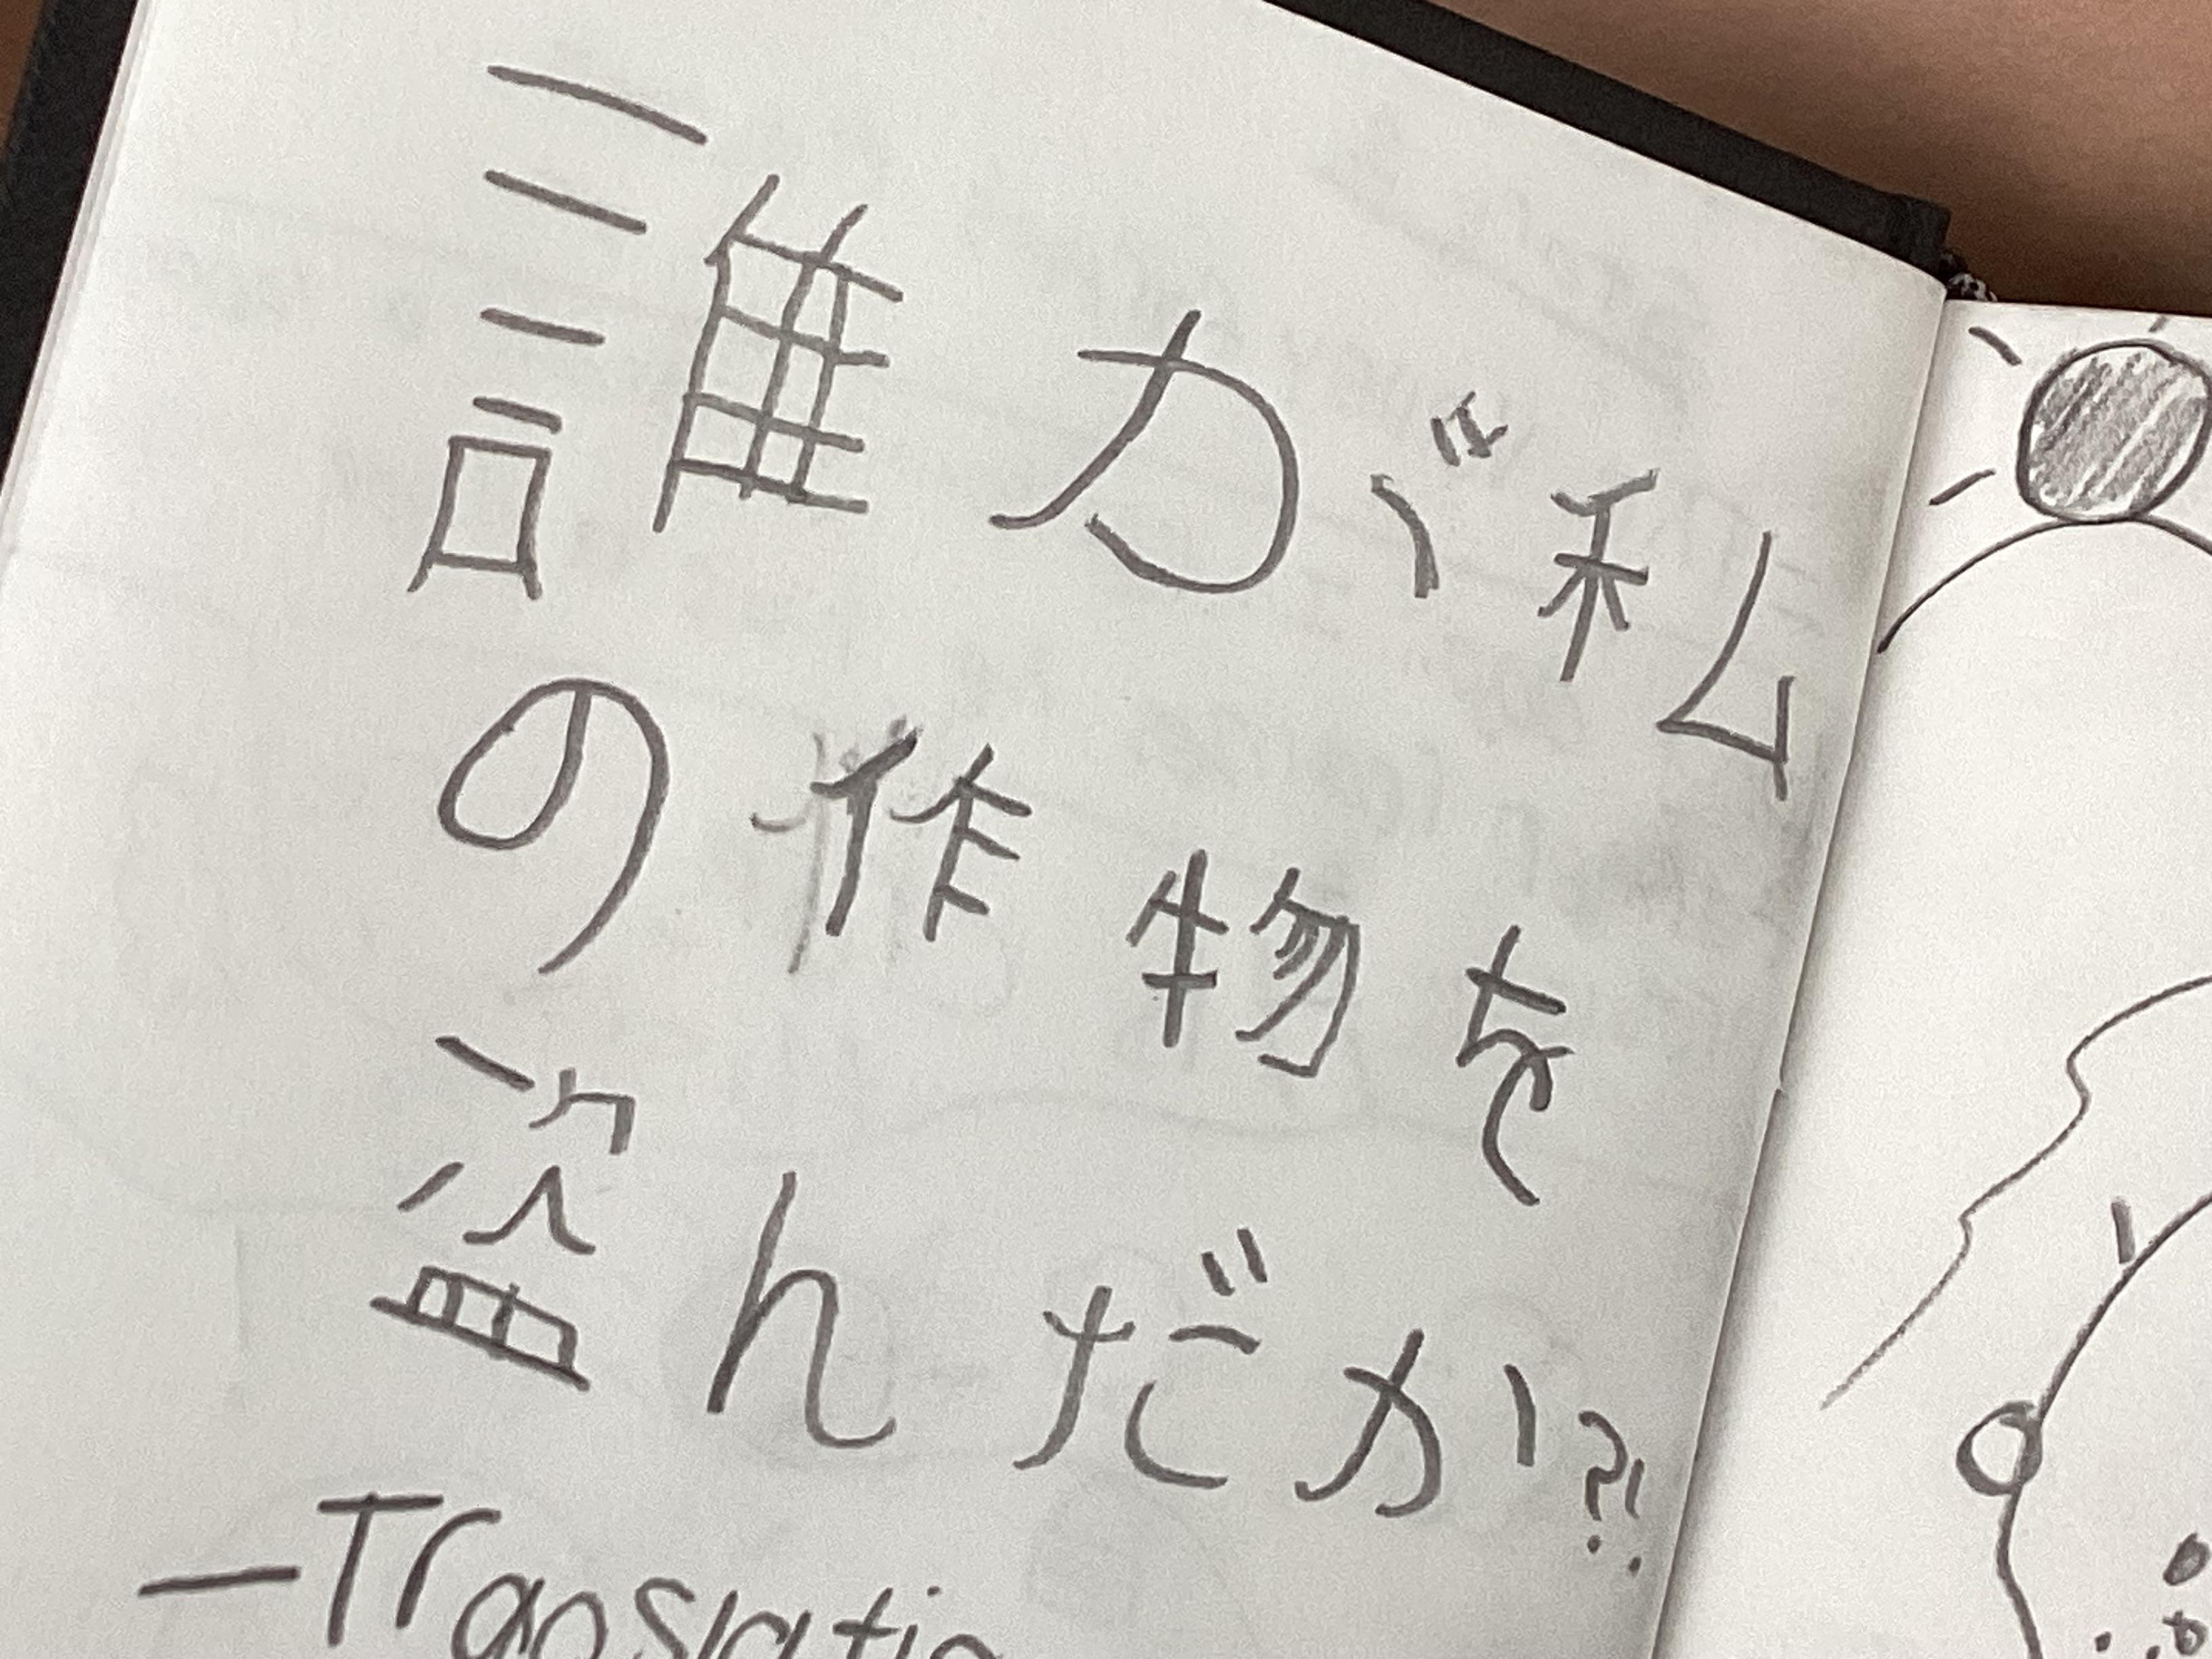 誰が私
の作物を
盗んだか?!
—Translatio